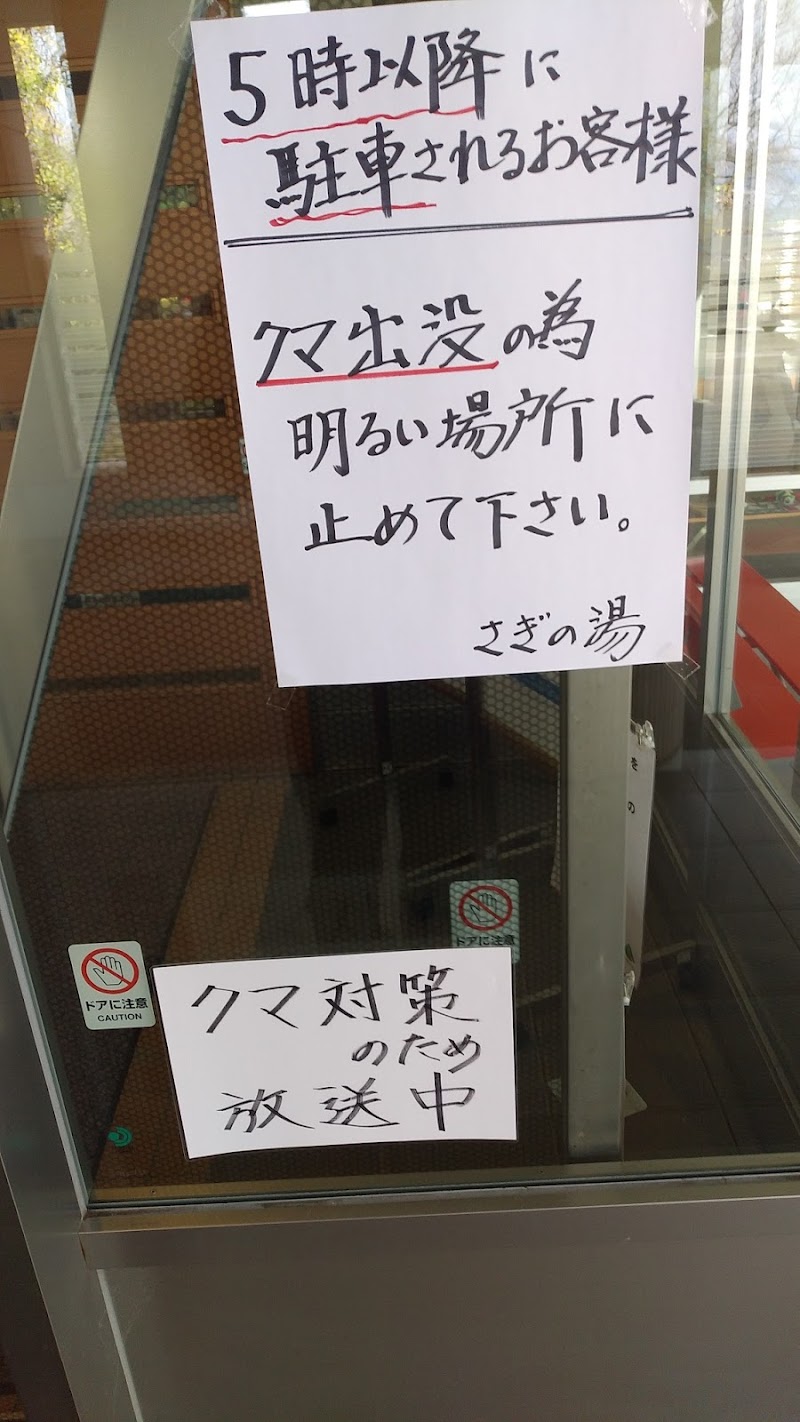 5時以降に
駐車されるお客様
クマ出没の為
明るい場所に
止めて下さい。
さぎの湯
を
の
ドアに注意
ドアに注意
CAUTION
クマ対策
のため
放送中